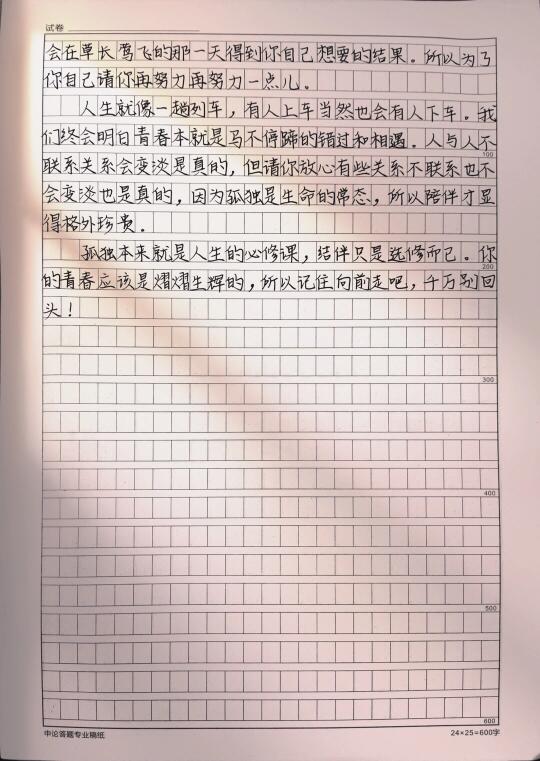 试卷
会在草长莺飞的那一天得到你自己想要的结果。所以为了
你自己请你再努力再努力一点儿。
人生就像一趟列车，有人上车当然也会有人下车。我
们终会明白青春本就是马不停蹄的错过和相遇。人与人不
100
联系关系会变淡是真的，但请你放心有些关系不联系也不
会变淡也是真的，因为孤独是生命的常态，所以陪伴才显
得格外珍贵。
孤独本来就是人生的必修课，结伴只是选修而己。你
200
的青春应该是熠熠生辉的，所以记住向前走吧，千万别回
头！
300
400
500
600
申论答题专业稿纸 24×25=600字